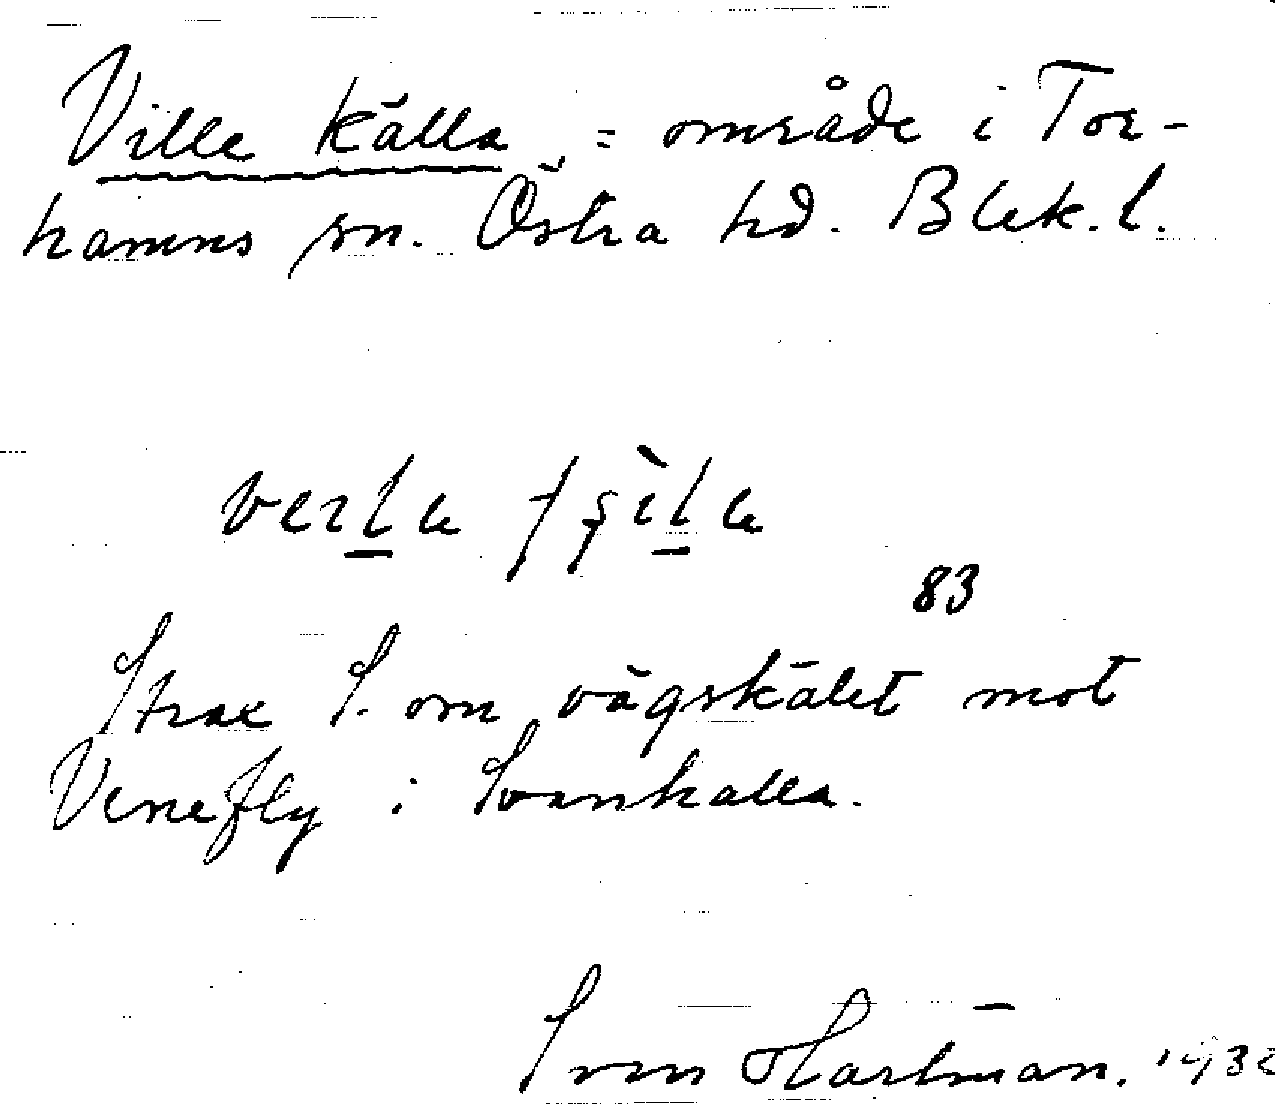 Ville källa = område i Tor-
hamns sn. Östra hd. Blek. l.
83
Strax S. om vägskälet mot
Venefly i Svanhalla.
Sven Hartman. 1932